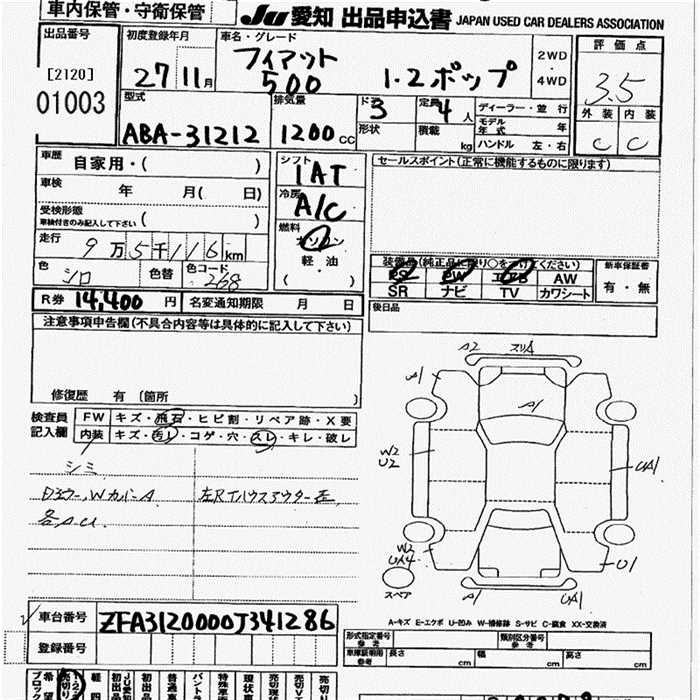 車内保管・守衛保管
JU 愛知 出品申込書 JAPAN USED CAR DEALERS ASSOCIATION
出品番号
[2120]
01003
初度登録年月
27 11月
車名・グレード
フィアット
500 1.2ポップ
2WD
・
4WD
評価点
3.5
外装 内装
C C
型式
ABA-31212
排気量
1200cc
ドア
3
形状
定員
4人
積載
kg
ディーラー・並行
モデル年式 年
ハンドル 左・右
車歴 自家用・( )
車検 年 月( 日)
受検形態
車検付きのみ記入して下さい ( )
走行 9万5千116km
色 シロ 色替 色コード 268
シフト
IAT
冷房
A/C
燃料
ガソリン
軽・油
( )
セールスポイント(正常に機能するものに限ります)
装備品(純正品に限り○をつけてください)
PS PW エアB AW
SR ナビ TV カワシート
新車保証書
有・無
後日品
R券 14,400円 名変通知期限 月 日
注意事項申告欄(不具合内容等は具体的に記入して下さい)
修復歴 有 (箇所 )
検査員
記入欄
FW キズ・飛石・ヒビ割・リペア跡・X要
内装 キズ・汚レ・コゲ・穴・スレ・キレ・破レ
シミ
各AU
A2 スリA
A1
A1
W2
U2
UA1
W2
UA4
U1
スペア
A1
UA1
A-キズ E-エクボ U-凹み W-補修跡 S-サビ C-腐食 XX-交換済
車台番号 ZFA3120000J341286
登録番号
形式指定番号
参考
類別区分番号
参考
車庫証明用
参考
長さ cm 幅 cm 高さ cm